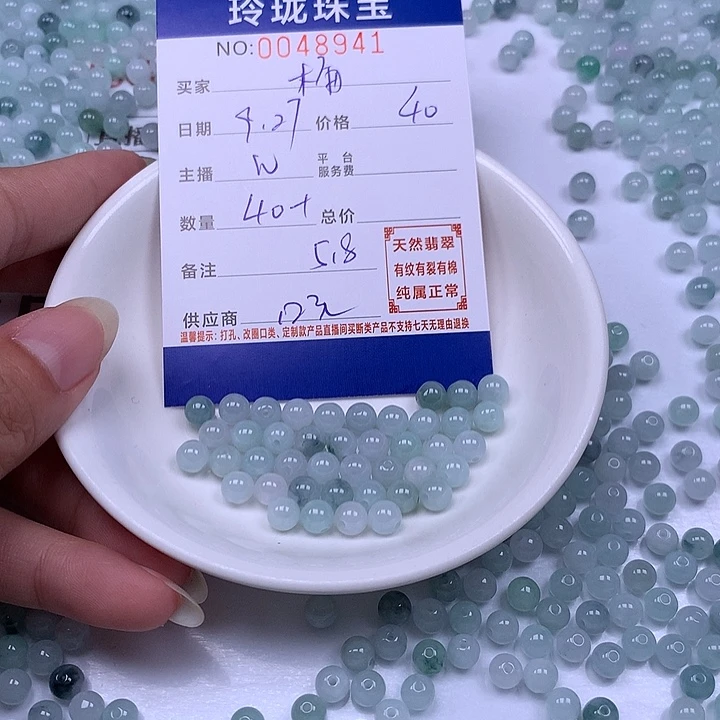 玲珑珠宝
NO:0048941
买家
日期 9.27 价格 40
主播 W 平台服务费
数量 40+ 总价
备注 5.8
供应商
天然翡翠
有纹有裂有棉
纯属正常
温馨提示：打孔、改圈口类、定制款产品直播间买断类产品不支持七天无理由退换